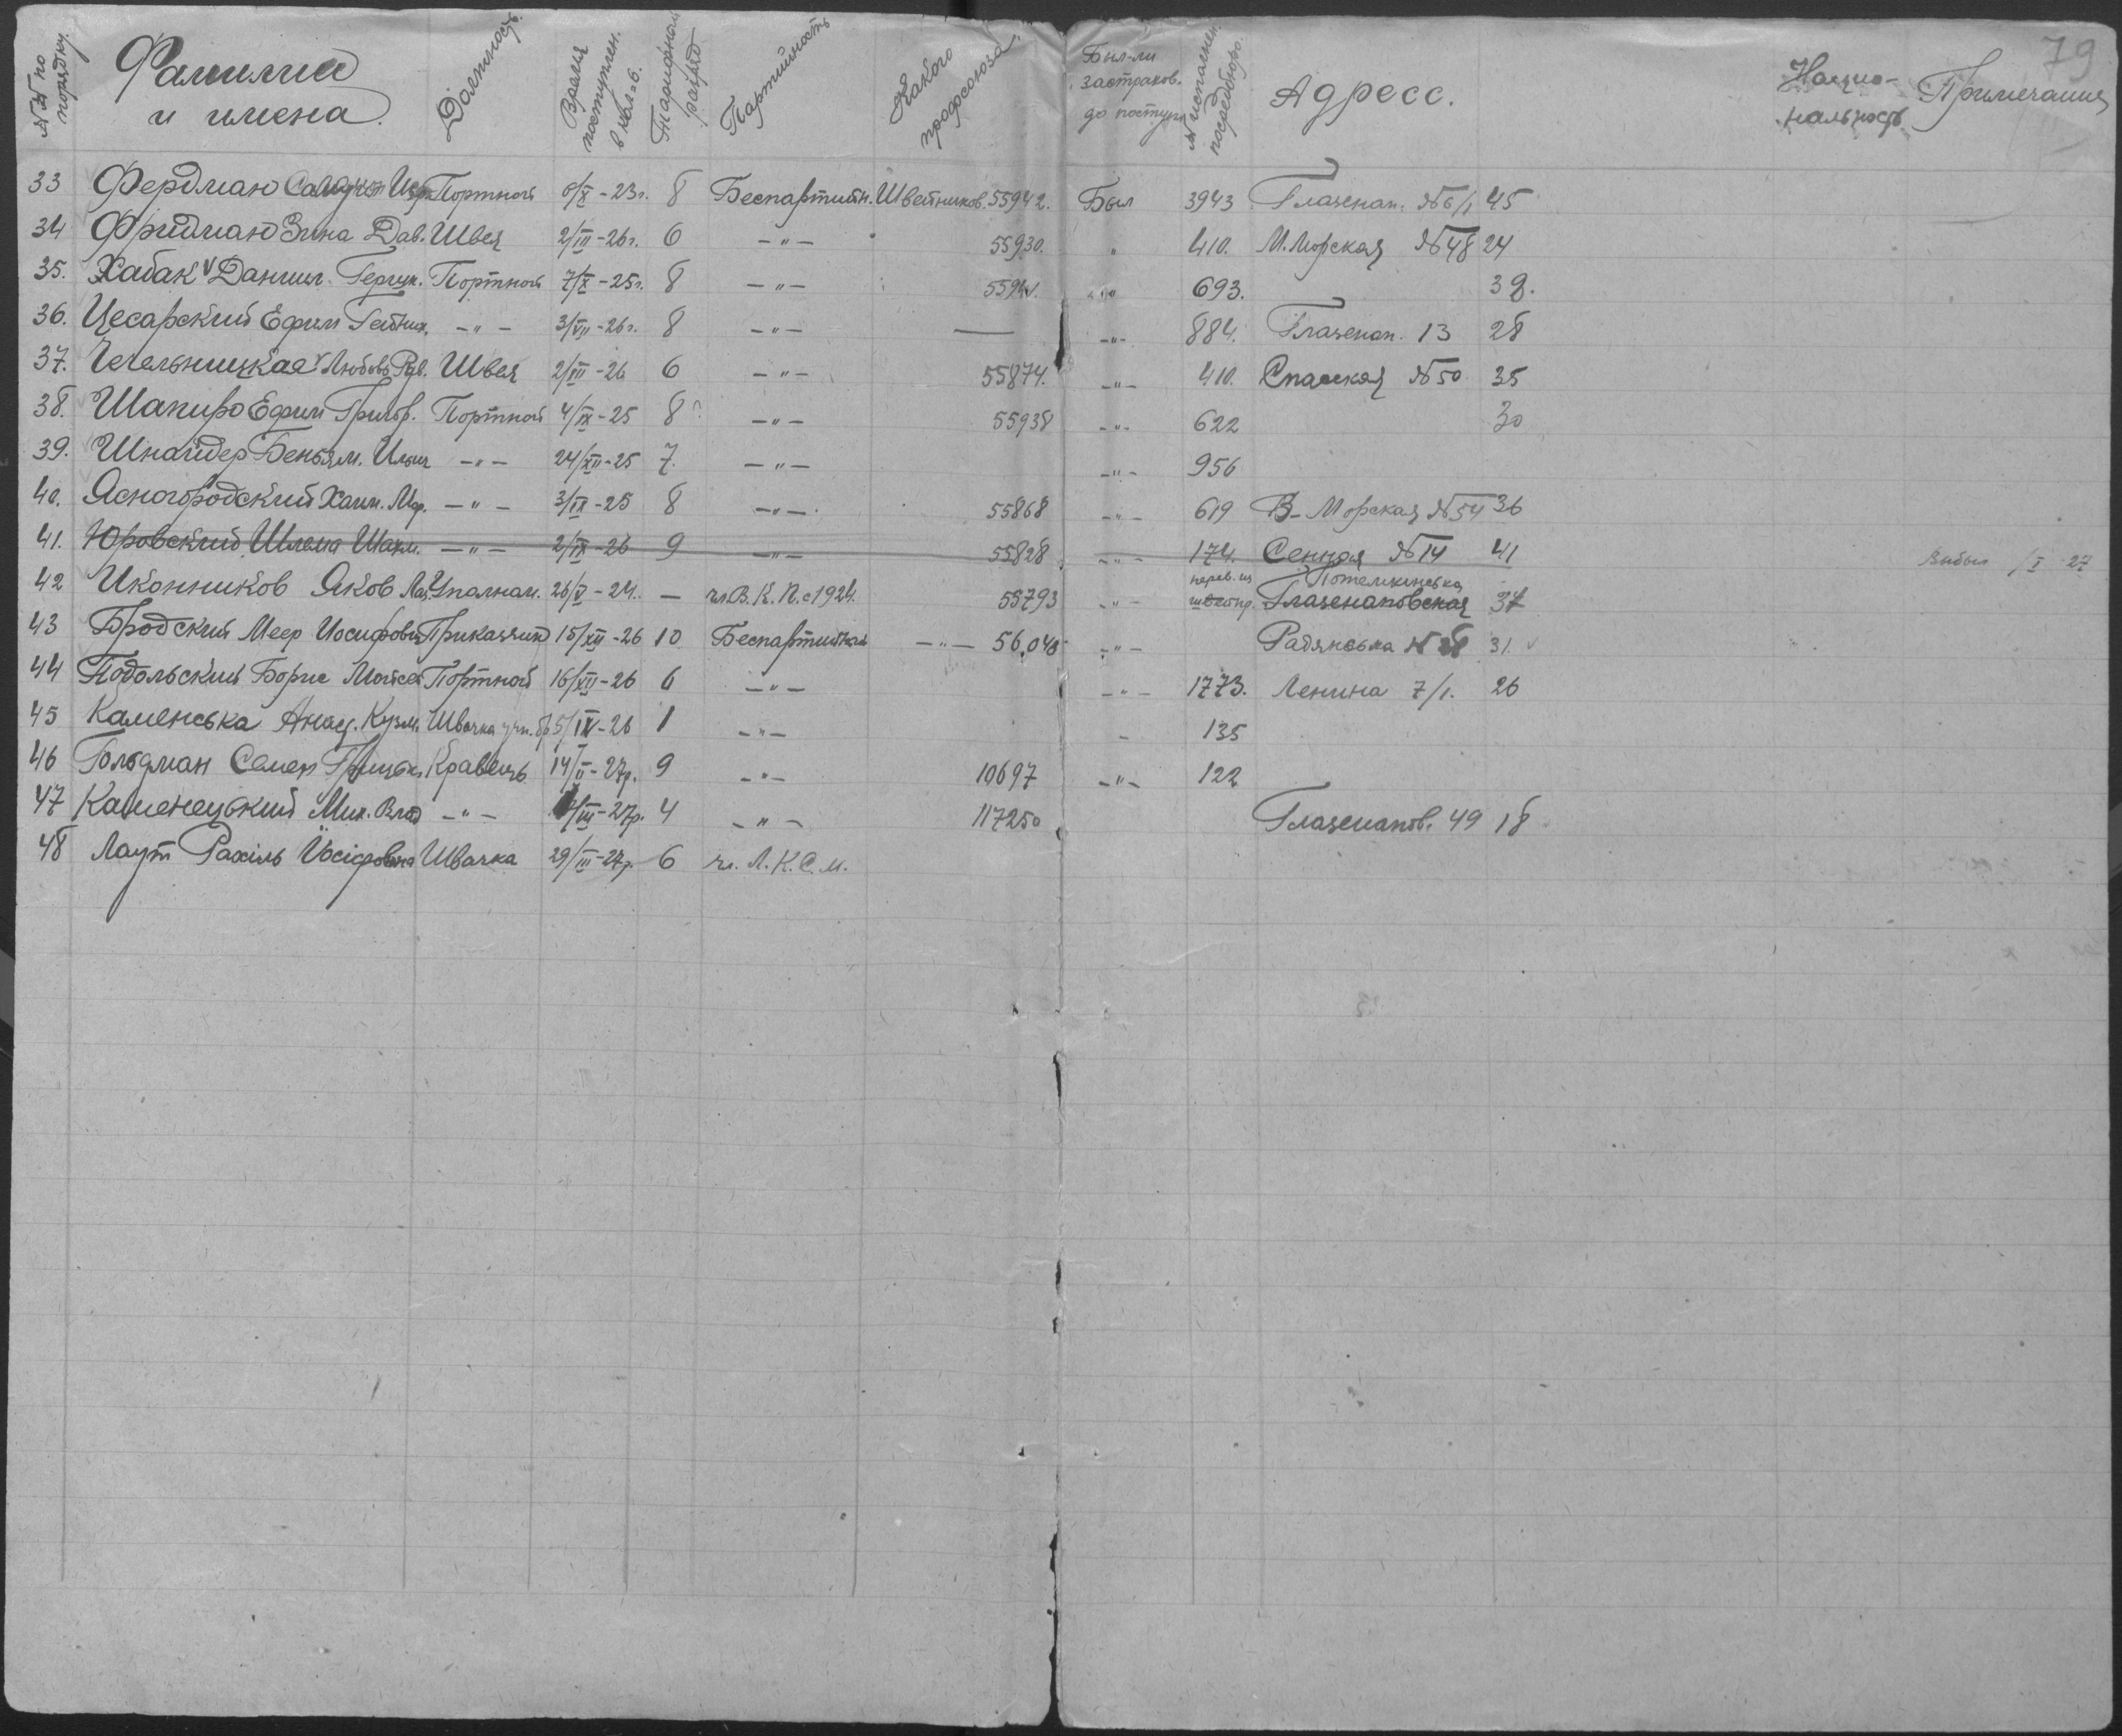 79
№№ по порядку. Фамилии и имена. Должность. Время поступлен. в кол-в. Тарифной разряд Партийность Какого профсоюза. Был-ли застраков. до поступл. № посредбюро. Адресс. Нацио-нальность Примечания
33 Фердман Портной 6/X - 23г. 8 Беспартийн. Швейников. 55942. Был 3943 Глазенап. №6/1 45
34 Фридман Зина Дав. Швея 2/III - 26г. 6 - " - 55930. " 410. М. Морская №48 24
35. Хабак Портной 7/X - 25г. 8 - " - " 693.
36. Цесарский Ефим - " - 3/VII - 26г. 8 - " - — - " - 884. Глазенап. 13 28
37. Чечельницкая Любовь Швея 2/III - 26 6 - " - 55874. - " - 410. Спасская №50 35
38. Шапиро Ефим Григор. Портной 4/IX - 25 8 - " - 55938 - " - 622 30
39. Шнайдер Беньям. - " - 24/XII - 25 7. - " - - " - 956
40. Ясногородский Хаим. - " - 3/IX - 25 8 - " - 55868 - " - 619 Б- Морская №54 36
41. Юровский Шлема - " - 2/IX - 26 9 - " - 55828 - " - 174. Сенная №14 41 Выбыл /I - 27
42 Иконников Яков 26/V - 24. — чл В. К. П. с 1924. 55793 - " - перев. из Потемкинська Глазенаповская 37
43 Бродский Меер Иосифович Приказчик 15/XII - 26 10 Беспартийный - " - 56,040 - " - Радянська 31.
44 Подольский Борис Мойсе Портной 16/XII - 26 6 - " - - " - 1773. Ленина 7/1. 26
45 Каменська Анас. Кузм. Швачка 5/IX - 26 1 - " - - 135
46 Гольдман Семен Кравець 14/II - 27р. 9 - " - 10697 - " - 122
47 Каменецький Мих. - " - /III - 27р. 4 - " - 117250 Глазенапов. 49 18
48 Лаут Рахіль Йосіфовна Швачка 29/III - 27р. 6 чл. Л. К. С. М.